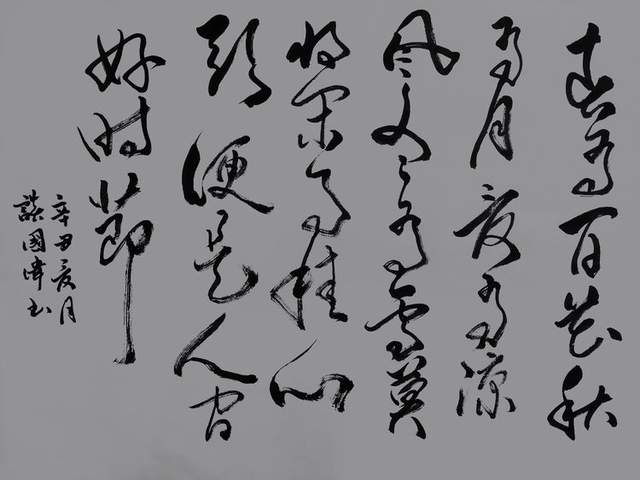 春有百花秋
有月夏有涼
风冬有雪莫
将闲事挂心
头便是人间
好时節
辛丑夏月
國偉书